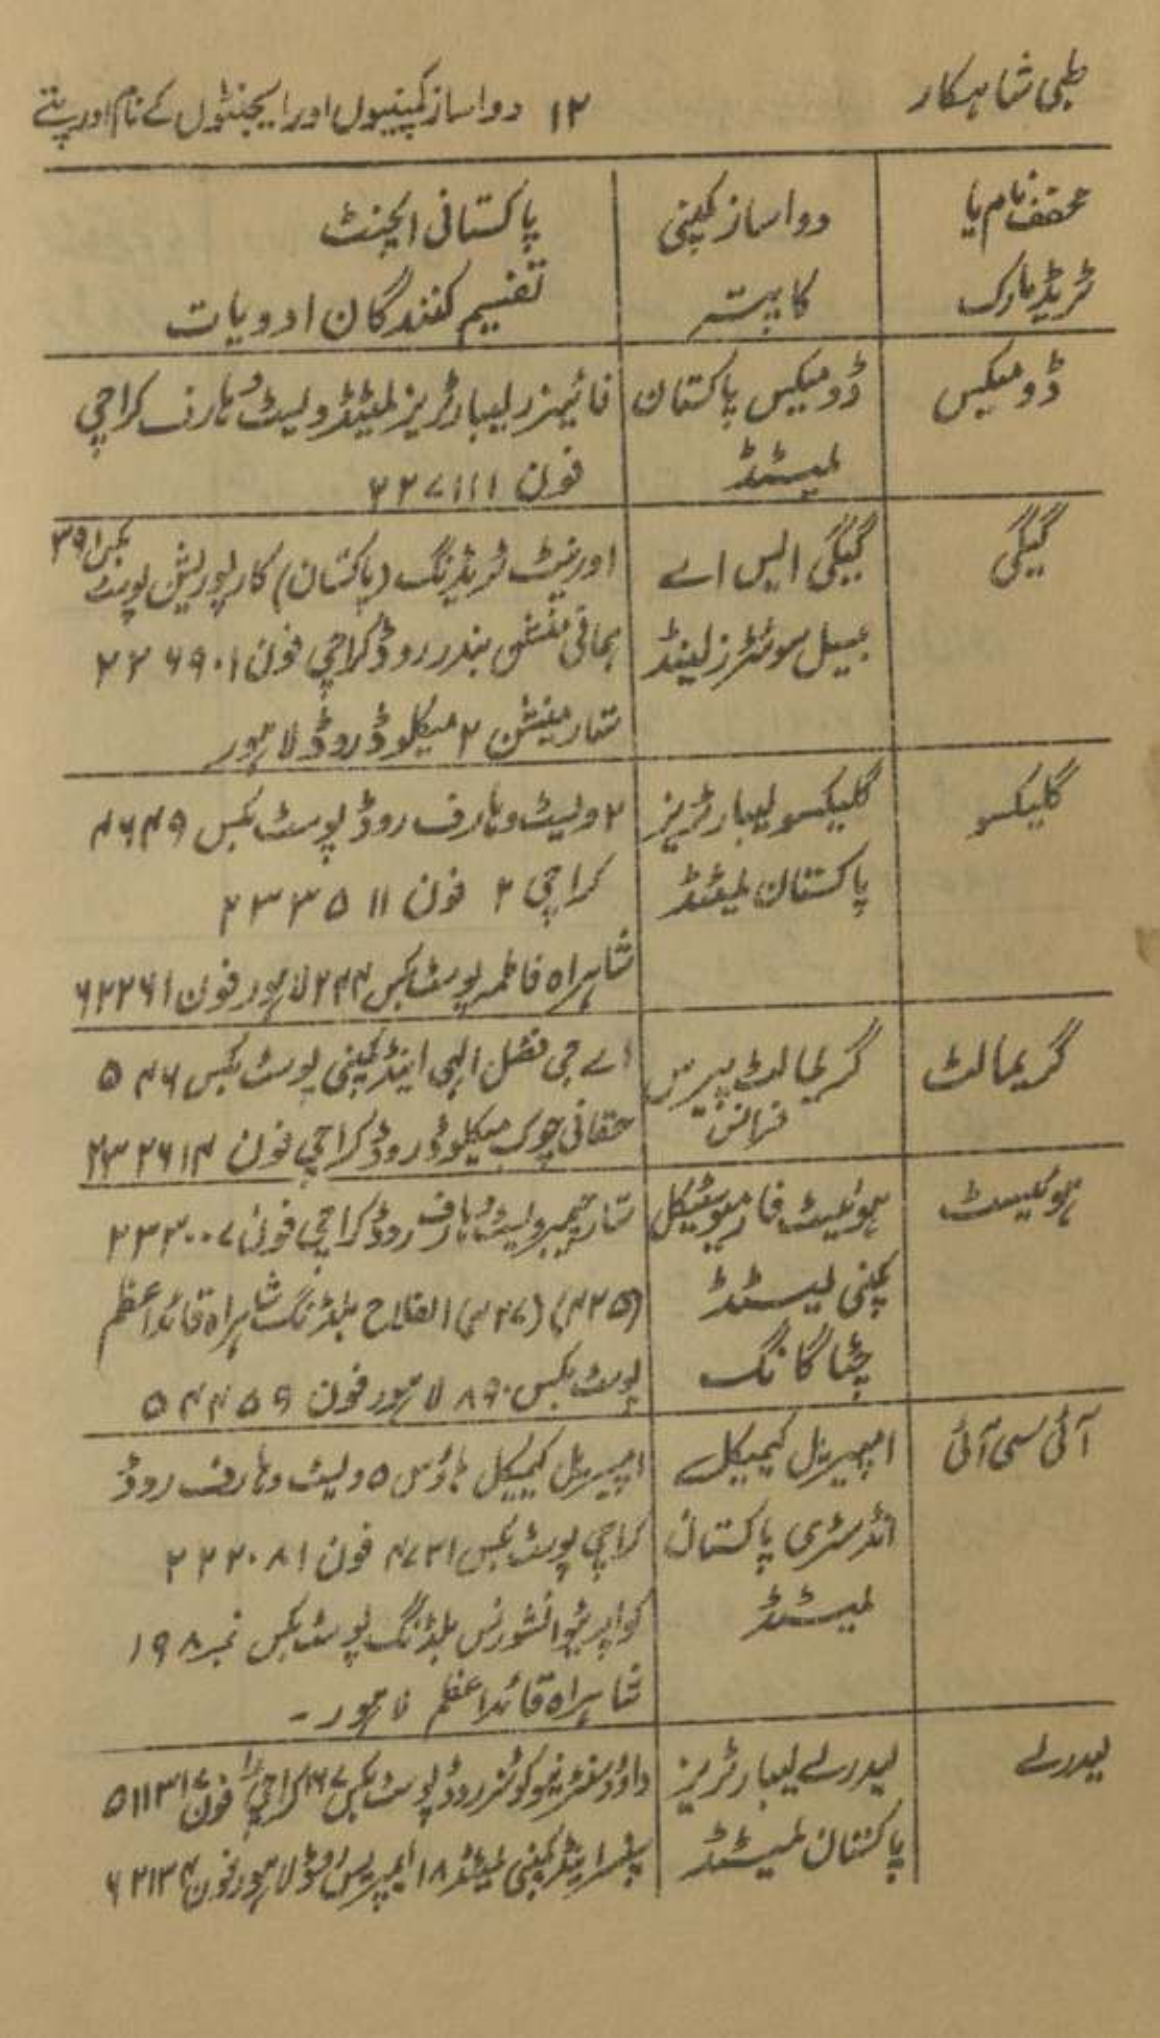 طبی شاہکار
۱۲ دواساز کمپنیوں اور ایجنٹوں کے نام اور پتے
مخفف نام یا
ٹریڈ مارک
دواساز کمپنی
کا پتہ
پاکستانی ایجنٹ
تقسیم کنندگان ادویات
ڈومیکس
ڈومیکس پاکستان
لمیٹڈ
فائیزر لیبارٹریز لمیٹڈ ویسٹ وہارف کراچی
فون ۲۲۷۱۱۱
گیگی
گیگی ایس اے
بیسل سوئٹزرلینڈ
اورینٹ ٹریڈنگ (پاکستان) کارپوریشن پوسٹ بکس ۳۹۱
مینشن بندر روڈ کراچی فون ۲۲۶۹۰۱
سٹار مینشن ۲ میکلوڈ روڈ لاہور
گلیکسو
گلیکسو لیبارٹریز
پاکستان لمیٹڈ
۲ ویسٹ وہارف روڈ پوسٹ بکس ۴۶۴۹
کراچی ۲ فون ۲۳۳۵۱۱
شاہراہ فاطمہ پوسٹ بکس ۲۴۴ لاہور فون ۶۲۲۶۱
گریمالٹ
گریمالٹ پیرس
فرانس
اے جی فضل الہی اینڈ کمپنی پوسٹ بکس ۵۴۶
حقانی چوک میکلوڈ روڈ کراچی فون ۲۳۲۶۱۴
ہوئیسٹ
ہوئیسٹ فارمیوٹیکل
کمپنی لمیٹڈ
چٹاگانگ
سٹار چیمبر ویسٹ وہارف روڈ کراچی فون ۲۳۲۰۰۷
(۴۲۵) (۴۲۷) الفلاح بلڈنگ شاہراہ قائداعظم
پوسٹ بکس ۸۹۰ لاہور فون ۵۴۴۵۹
آئی سی آئی
امپیریل کیمیکل
انڈسٹری پاکستان
لمیٹڈ
امپیریل کیمیکل ہاؤس ۵ ویسٹ وہارف روڈ
کراچی پوسٹ بکس ۴۷۳۱ فون ۲۲۲۰۸۱
کواپریٹو انشورنس بلڈنگ پوسٹ بکس نمبر ۱۹۸
شاہراہ قائداعظم لاہور۔
لیدرلے
لیدرلے لیبارٹریز
پاکستان لمیٹڈ
داؤد سنٹر مولوی روڈ پوسٹ بکس کراچی فون ۵۱۱۳۱۷
اینڈ کمپنی لمیٹڈ ۱۸ ایمپریس روڈ لاہور فون ۶۲۱۳۴